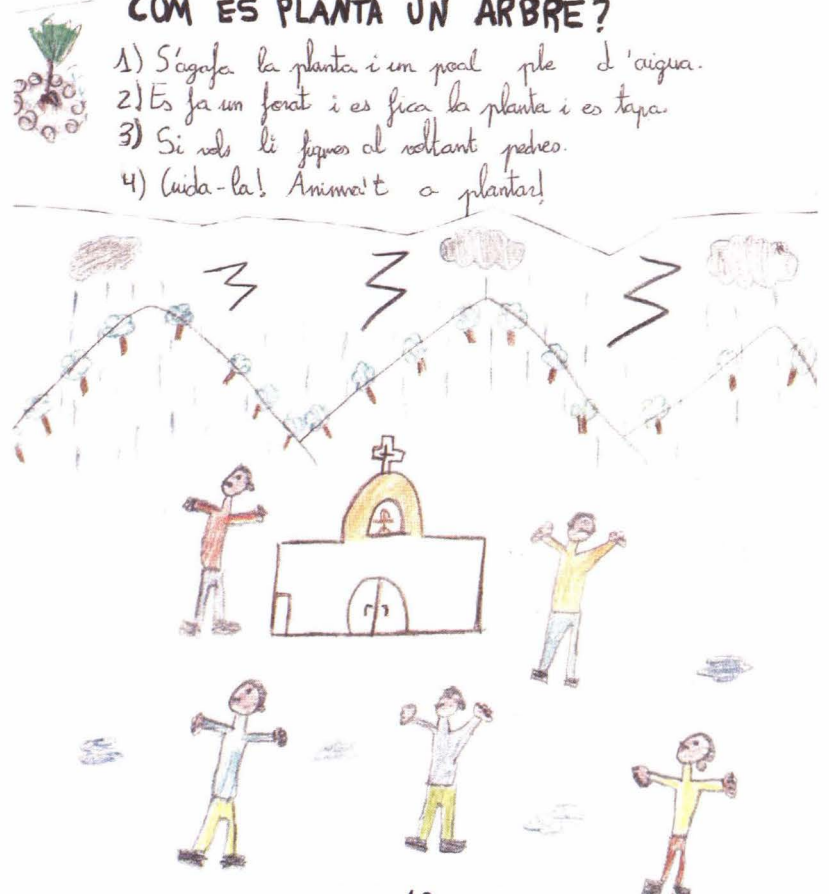 COM ES PLANTA UN ARBRE?
1) S'agafa la planta i un poal ple d'aigua.
2) Es fa un forat i es fica la planta i es tapa.
3) Si vols li fiques al voltant pedres.
4) Cuida-la! Anima't a plantar!